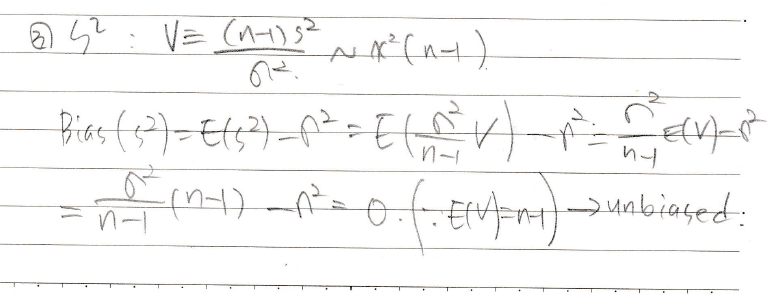 ② S² : V ≡ (n-1)S² / σ² ~ χ²(n-1)
Bias(S²) = E(S²) - σ² = E(σ²/(n-1) V) - σ² = σ²/(n-1) E(V) - σ²
= σ²/(n-1) (n-1) - σ² = 0. (∵ E(V)=n-1) → unbiased.